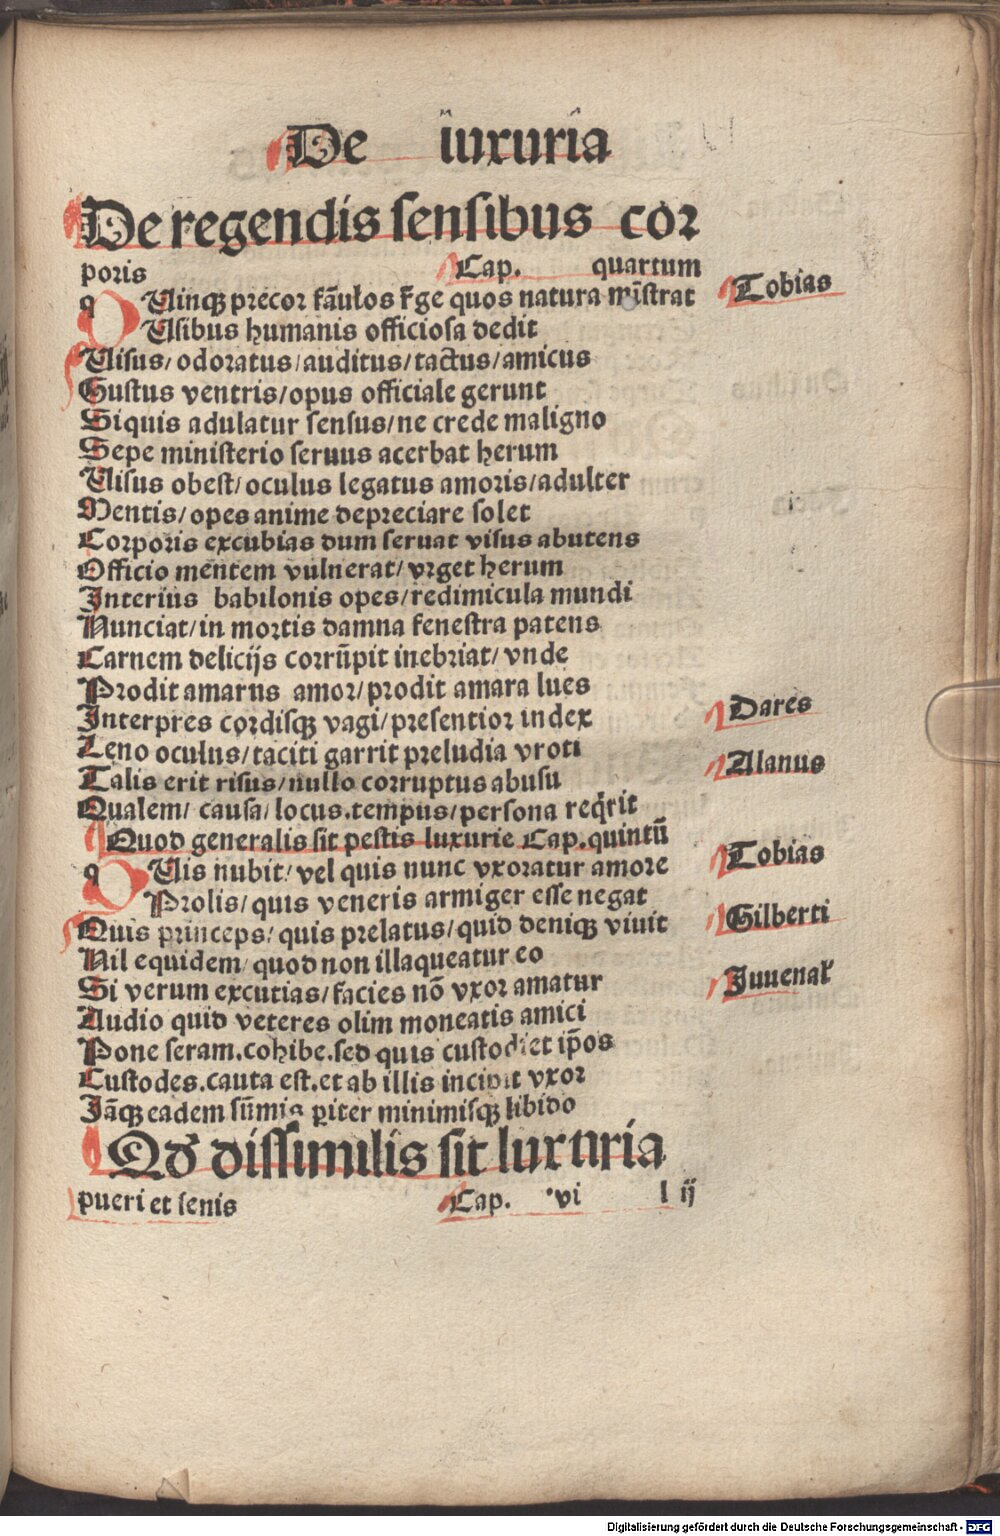 De luxuria
De regendis sensibus cor
poris Cap. quartum
qUinqꝫ precor fãulos r̃ge quos natura mĩstrat Tobias
Usibus humanis officiosa dedit
Uisus/ odoratus/auditus/tactus/amicus
Gustus ventris/opus officiale gerunt
Siquis adulatur sensus/ne crede maligno
Sepe ministerio seruus acerbat herum
Uisus obest/oculus legatus amoris/adulter
Mentis/opes anime depreciare solet
Corporis excubias dum seruat visus abutens
Officio mentem vulnerat/vrget herum
Interius babilonis opes/redimicula mundi
Nunciat/in mortis damna fenestra patens
Carnem delicijs corrũpit inebriat/vnde
Prodit amarus amor/prodit amara lues
Interpres cordisqꝫ vagi/presentior index Dares
Leno oculus/taciti garrit preludia vroti
Talis erit risus/nullo corruptus abusu Alanus
Qualem/ causa/locus.tempus/persona reqͥrit
Quod generalis sit pestis luxurie Cap.quintũ
qUis nubit/vel quis nunc vxoratur amore Tobias
Prolis/quis veneris armiger esse negat
Quis princeps/quis prelatus/quid deniqꝫ viuit Gilberti
Nil equidem quod non illaqueatur eo
Si verum excutias/facies nõ vxor amatur Juuenal
Audio quid veteres olim moneatis amici
Pone seram.cohibe.sed quis custodiet ip̃os
Custodes.cauta est.et ab illis incipit vxor
Jãqꝫ eadem sũmis ꝑiter minimisqꝫ libido
Qđ dissimilis sit luxuria
pueri et senis Cap. vi l ij
Digitalisierung gefördert durch die Deutsche Forschungsgemeinschaft - DFG